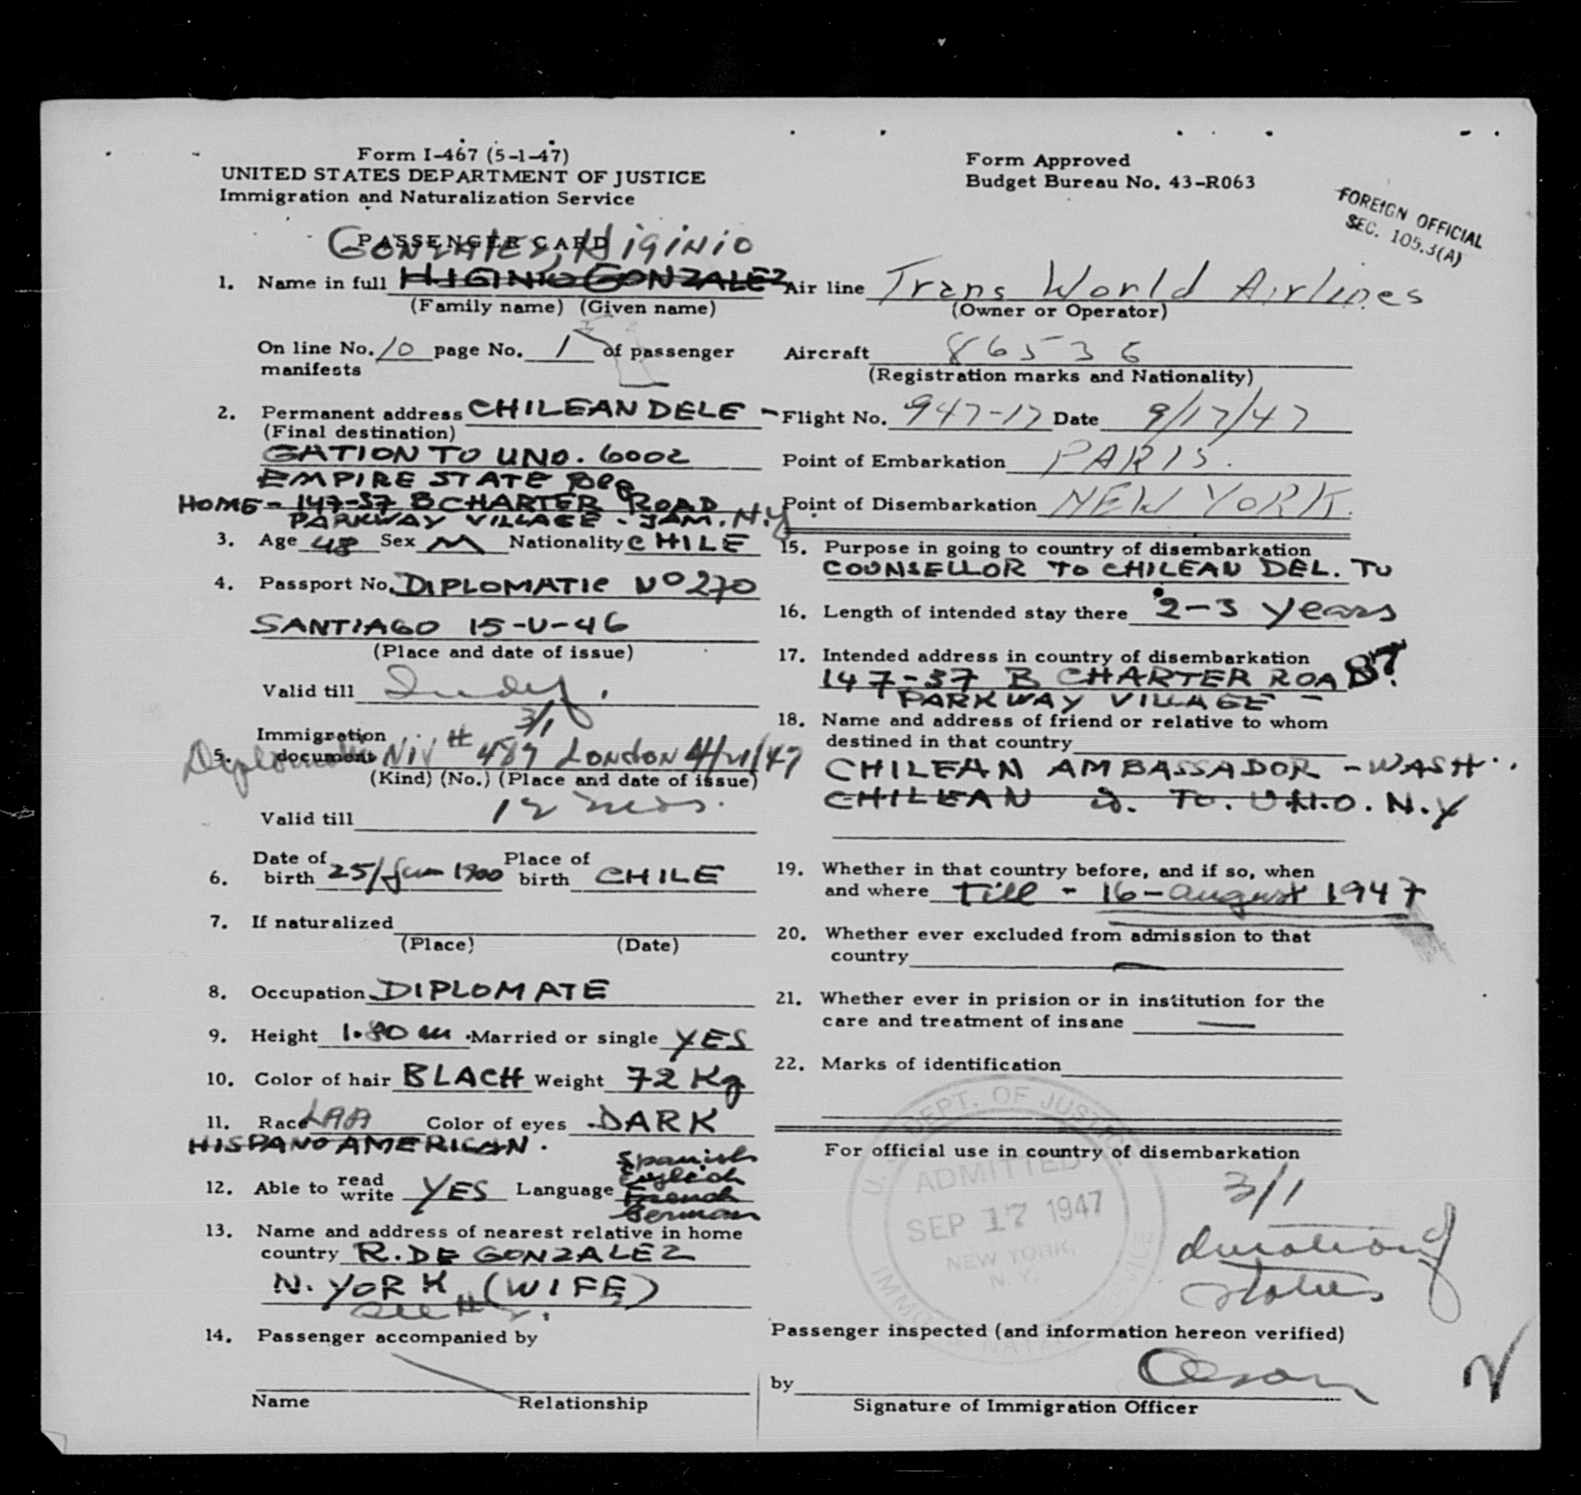 Form I-467 (5-1-47)
UNITED STATES DEPARTMENT OF JUSTICE
Immigration and Naturalization Service
Form Approved
Budget Bureau No. 43-R063
FOREIGN OFFICIAL
SEC. 105.3(A)
PASSENGER CARD
Gonzalez, Higinio
1. Name in full HIGINIO GONZALEZ
(Family name) (Given name)
On line No. 10 page No. 1 of passenger
manifests
2. Permanent address CHILEAN DELE-
(Final destination)
GATION TO UNO. 6002
EMPIRE STATE Blg
HOME - 147-37 B CHARTER ROAD
PARKWAY VILLAGE - JAM. N.Y
3. Age 48 Sex M Nationality CHILE
4. Passport No. DIPLOMATIC Nº 270
SANTIAGO 15-V-46
(Place and date of issue)
Valid till Indef.
3/1
5. Immigration
document Diplomatic NIV # 489 LONDON 4/21/47
(Kind) (No.) (Place and date of issue)
Valid till 12 mos.
6. Date of birth 25/Jan 1900 Place of birth CHILE
7. If naturalized
(Place) (Date)
8. Occupation DIPLOMATE
9. Height 1.80 m. Married or single YES
10. Color of hair BLACH Weight 72 Kg
11. Race Color of eyes DARK
HISPANO AMERICAN.
12. Able to read write YES Language Spanish
English
French
German
13. Name and address of nearest relative in home
country R. DE GONZALEZ
N. YORK (WIFE)
see # 2.
14. Passenger accompanied by
Name Relationship
Air line Trans World Airlines
(Owner or Operator)
Aircraft 86536
(Registration marks and Nationality)
Flight No. 947-17 Date 9/17/47
Point of Embarkation PARIS.
Point of Disembarkation NEW YORK.
15. Purpose in going to country of disembarkation
COUNSELLOR TO CHILEAN DEL. TO
16. Length of intended stay there 2-3 years
17. Intended address in country of disembarkation
147-37 B CHARTER ROAD.
PARKWAY VILLAGE -
18. Name and address of friend or relative to whom
destined in that country
CHILEAN AMBASSADOR - WASH.
CHILEAN D. TO. U.N.O. N.Y
19. Whether in that country before, and if so, when
and where Till - 16 - august 1947
20. Whether ever excluded from admission to that
country —
21. Whether ever in prision or in institution for the
care and treatment of insane —
22. Marks of identification
For official use in country of disembarkation
U.S. DEPT. OF JUSTICE
ADMITTED
SEP 17 1947
NEW YORK,
N.Y.
3/1
duration of
status
Passenger inspected (and information hereon verified)
by
Signature of Immigration Officer